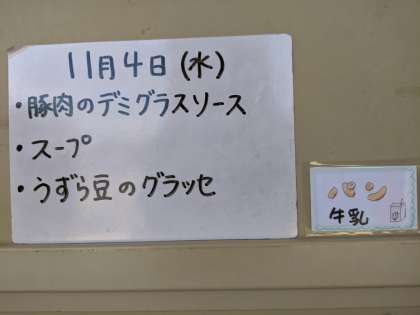 11月4日(水)
・豚肉のデミグラスソース
・スープ
・うずら豆のグラッセ
パン
牛乳